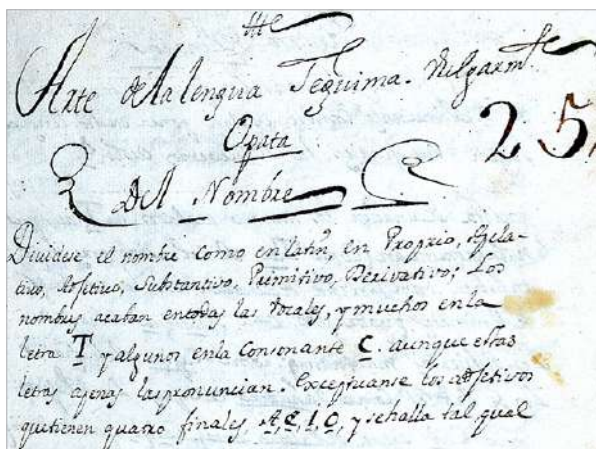 Arte de la lengua Teguima. Vulgarm.te
Opata
25
Del Nombre
Dividese el nombre como en latin, en Proprio, Apela-
tivo, Adjetivo, Substantivo, Primitivo, Derivativo; Los
nombres acaban en todas las Vocales, y muchos en la
letra T y algunos en la Consonante C. aunque estas
letras apenas las pronuncian. Exceptuanse los adjetivos
que tienen quatro finales, A, E, I, O, y se halla tal qual